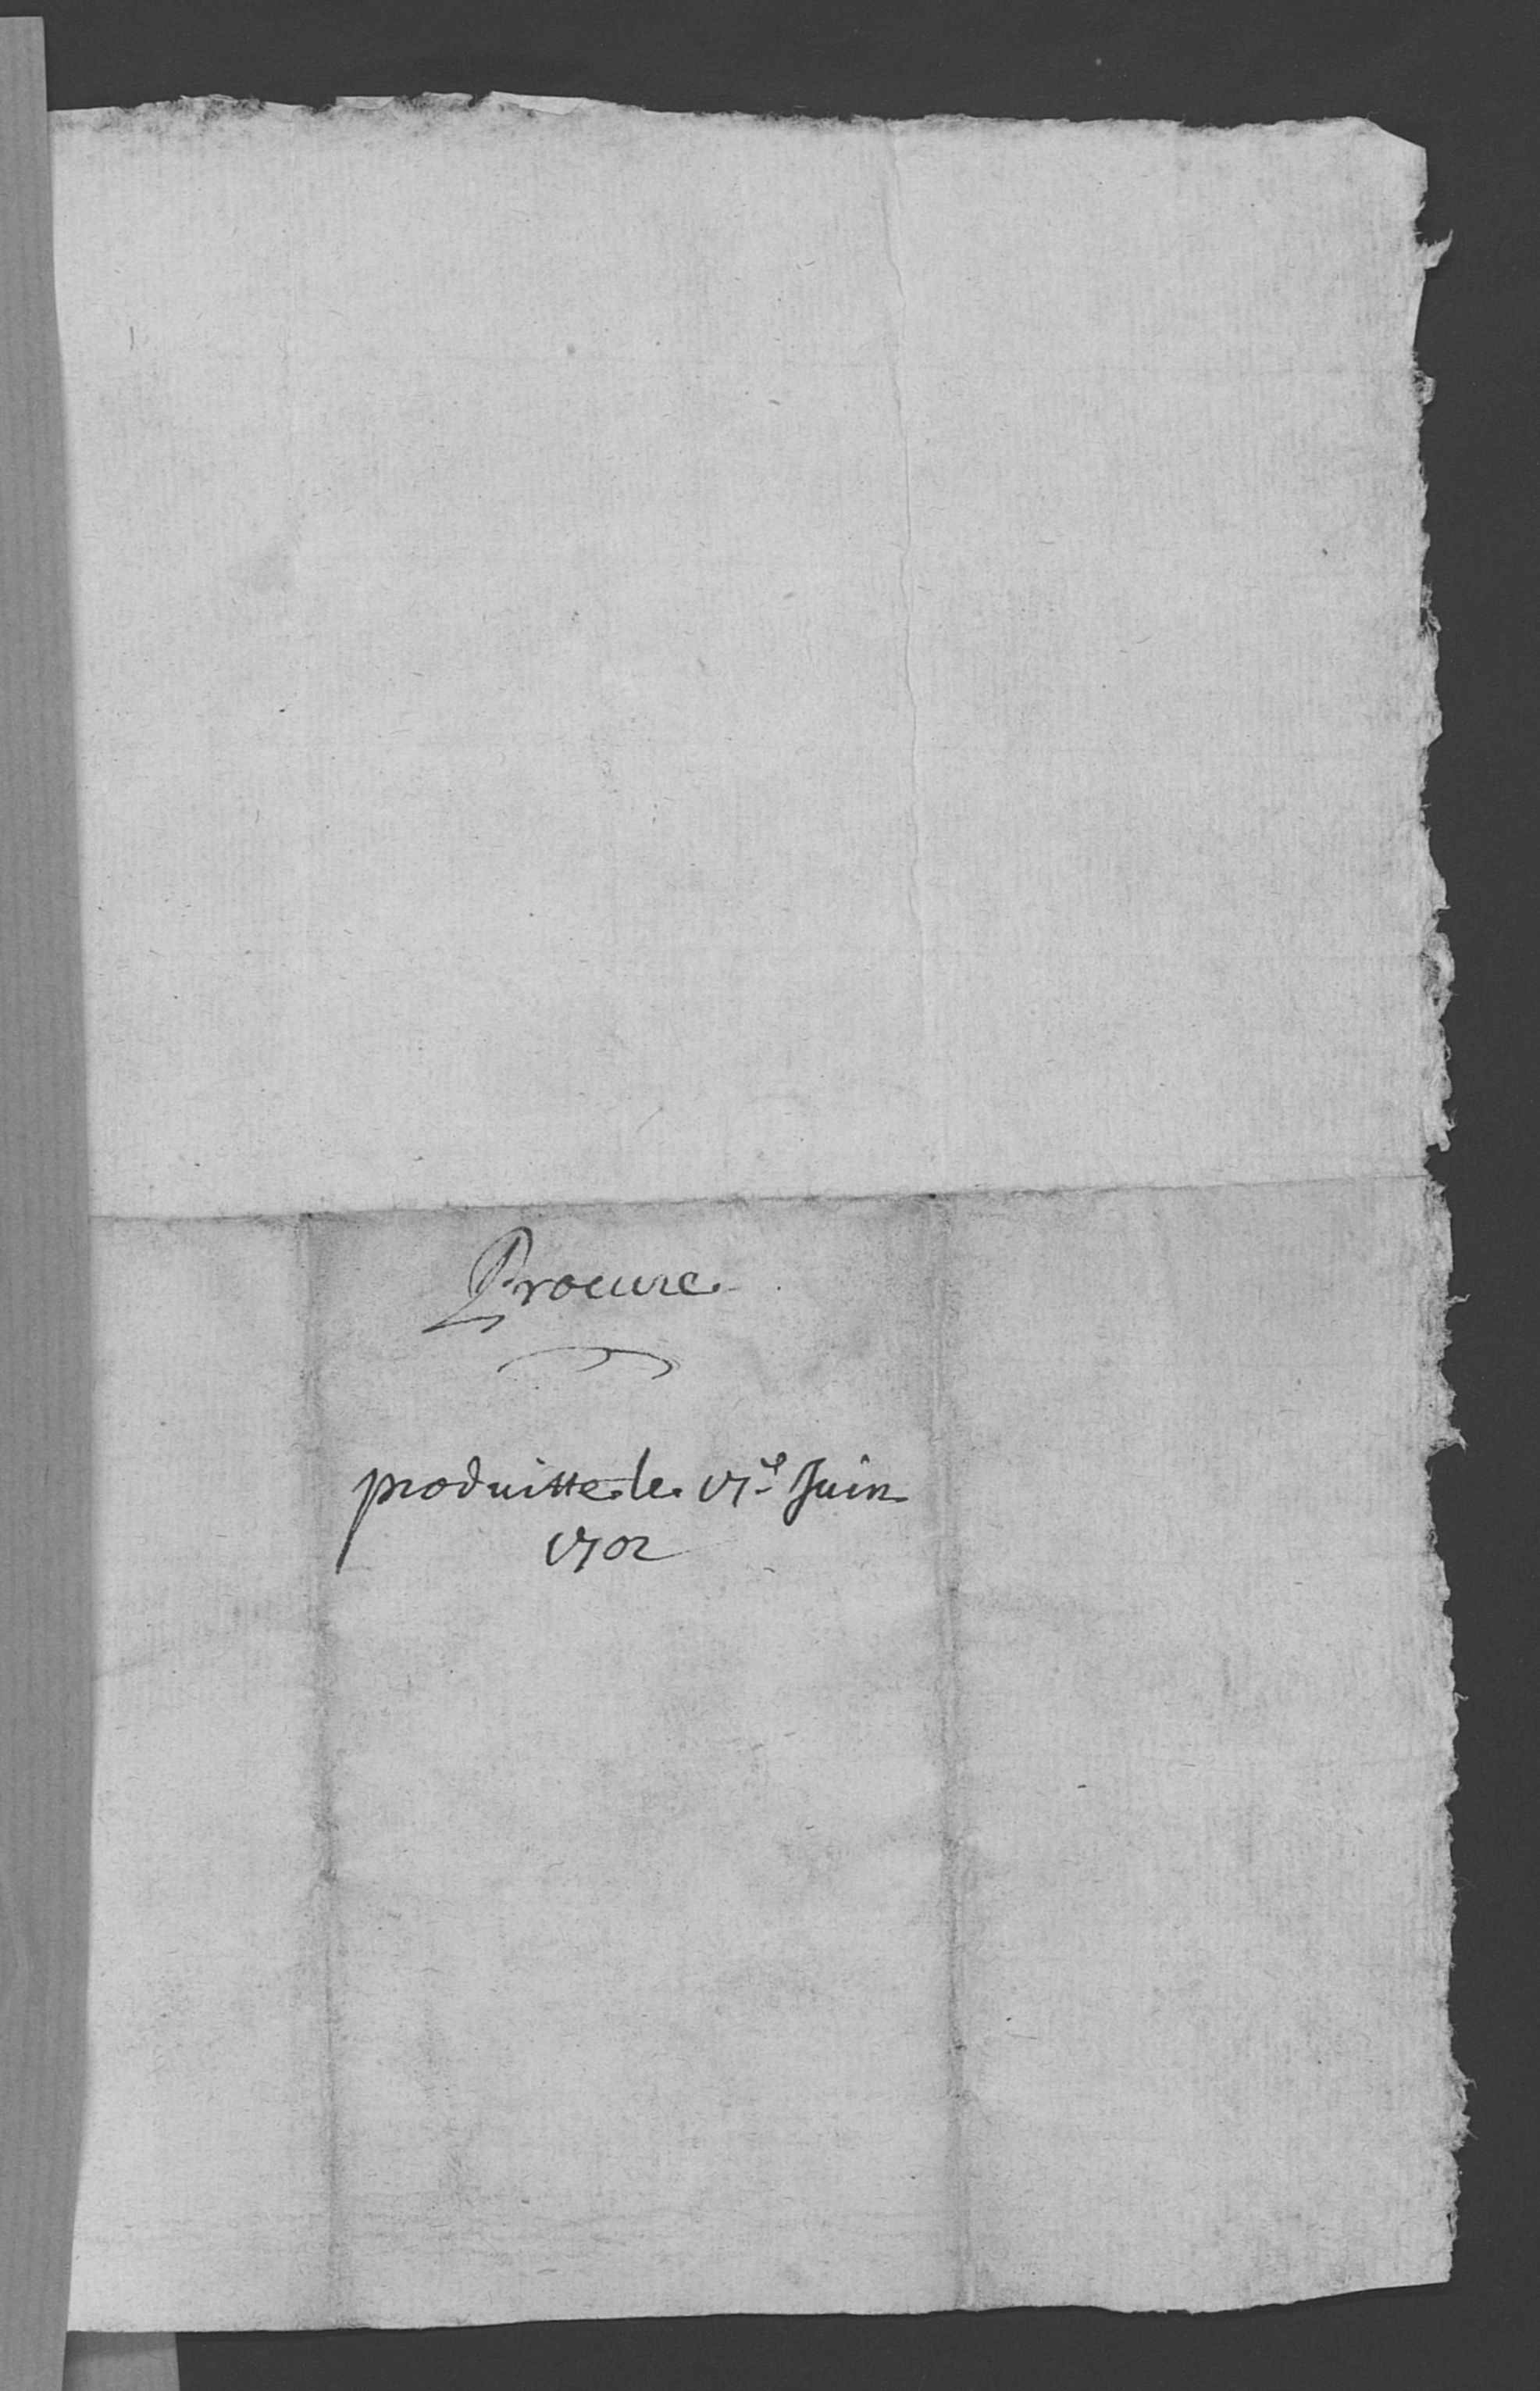 Procure
produitte le 17e Juin
1702